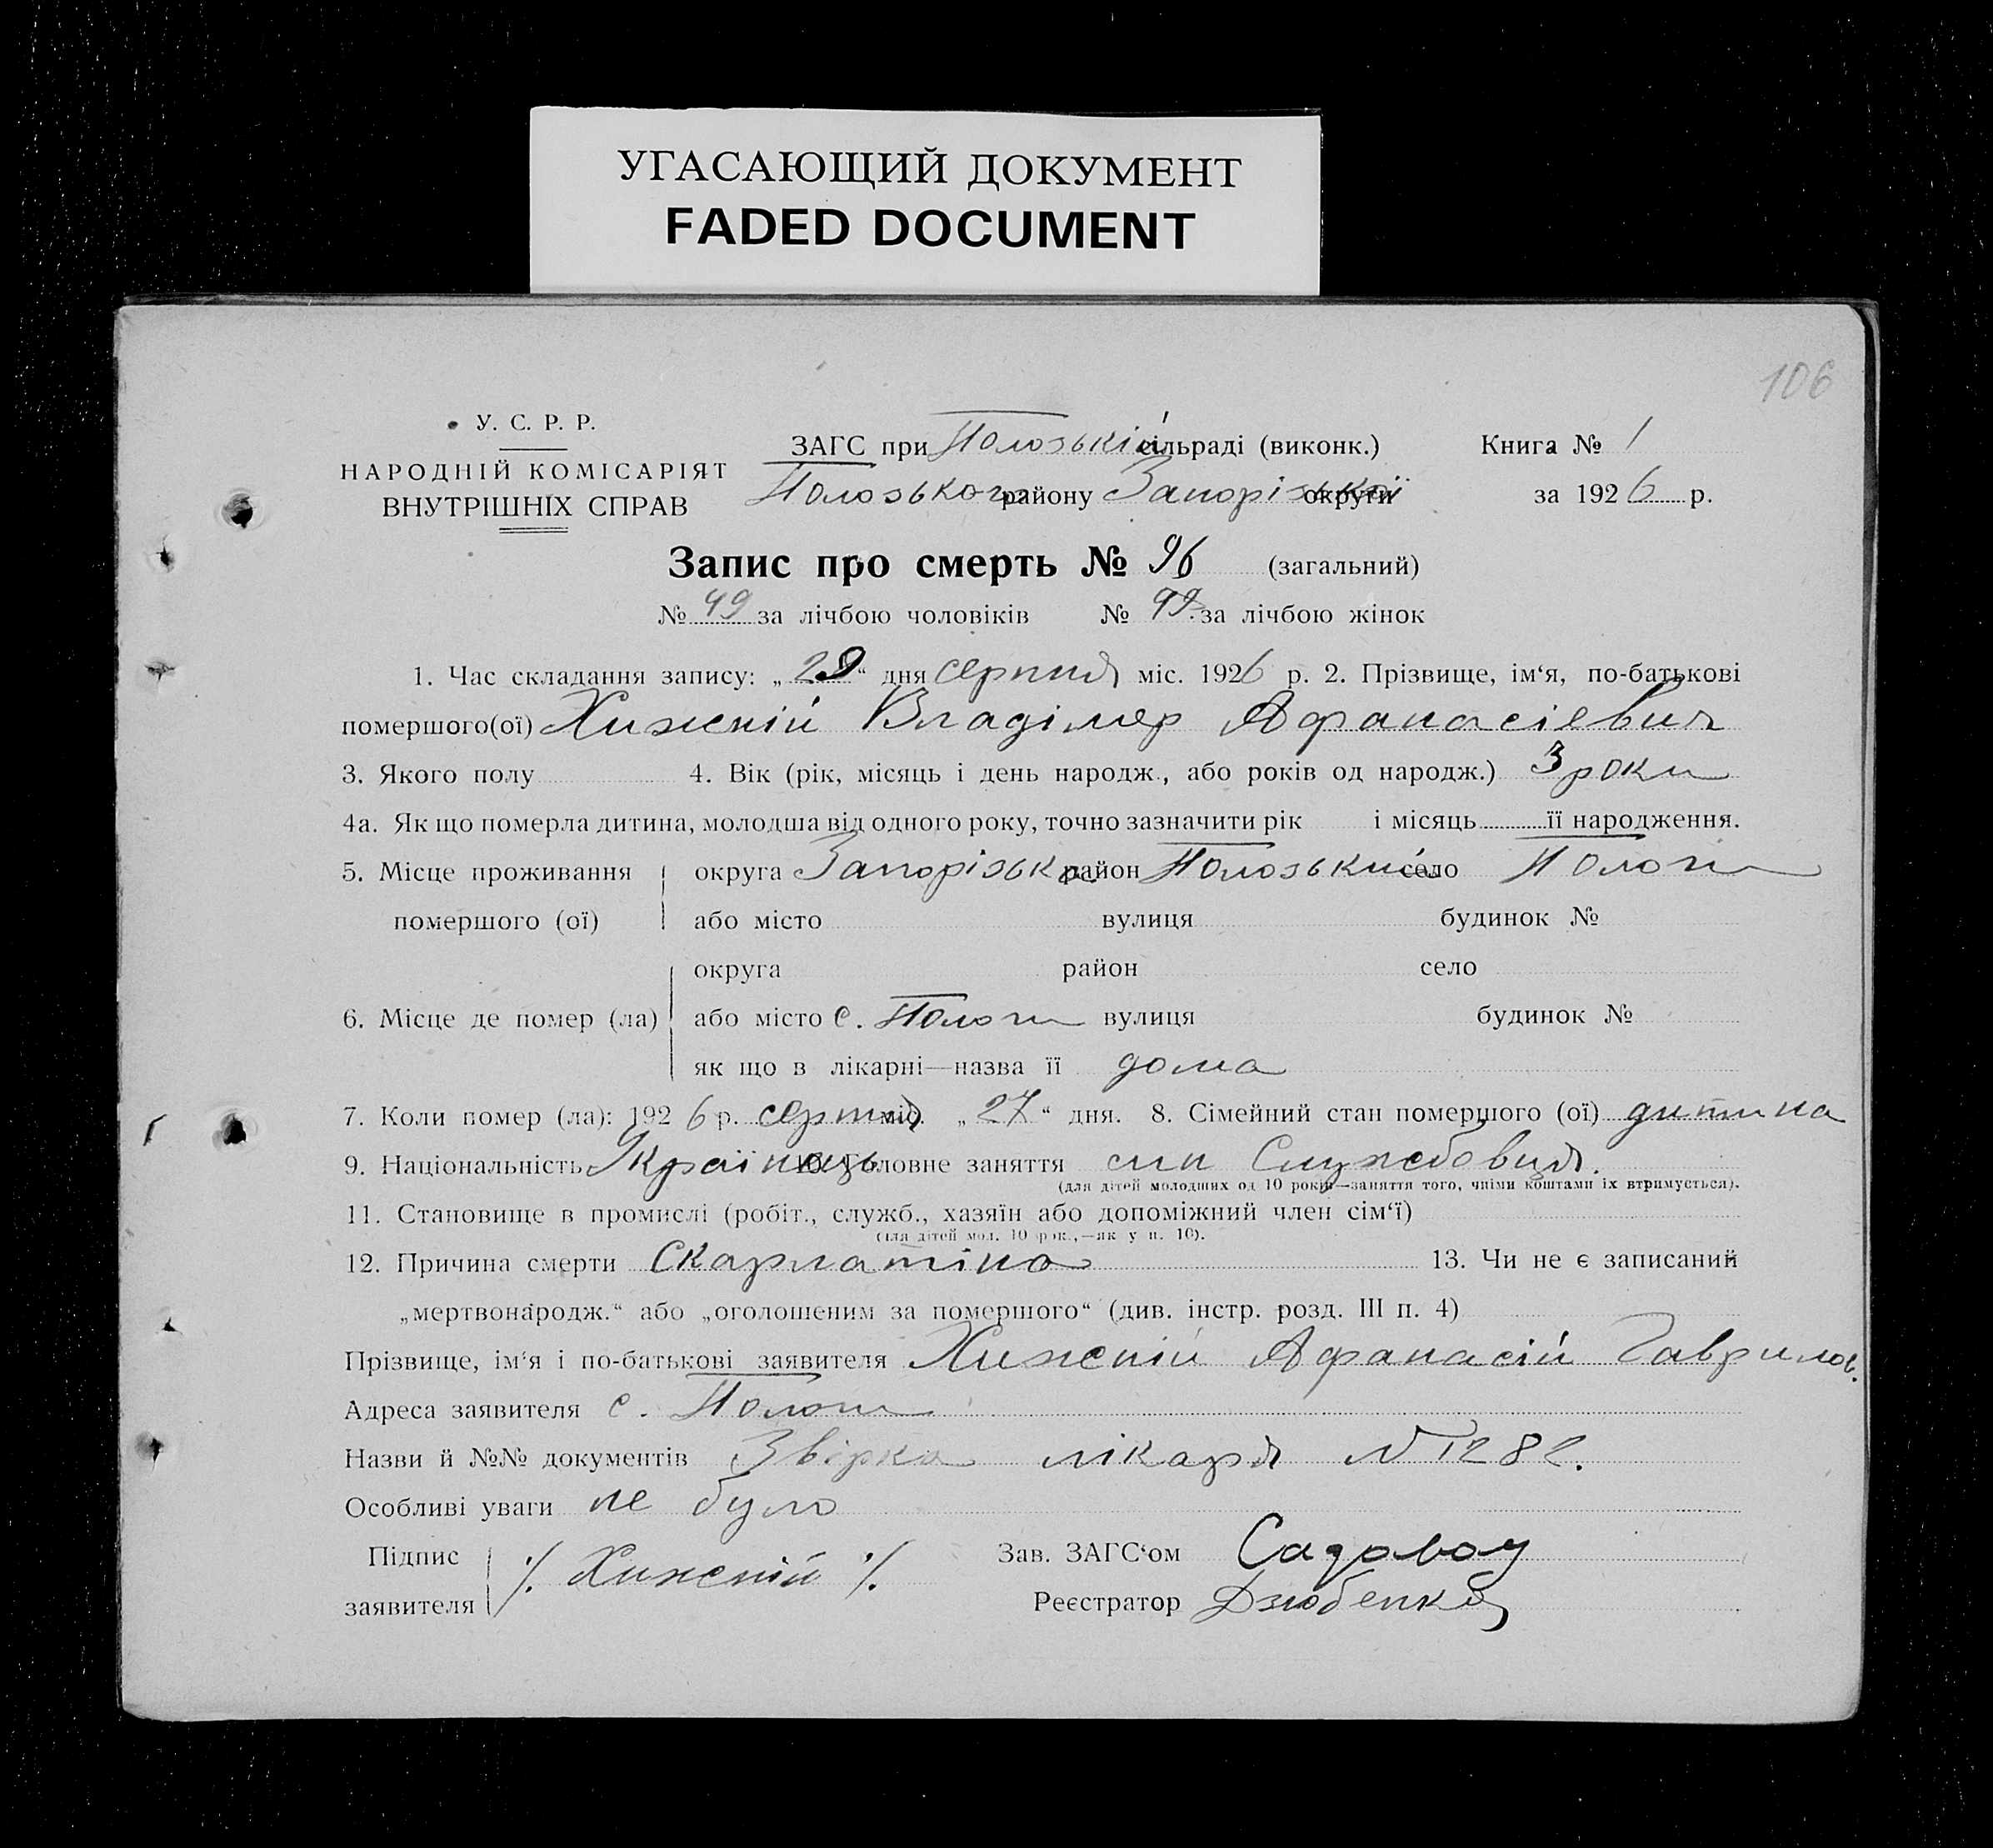 УГАСАЮЩИЙ ДОКУМЕНТ
FADED DOCUMENT
106
У. С. Р. Р.
НАРОДНІЙ КОМІСАРІЯТ
ВНУТРІШНІХ СПРАВ
ЗАГС при Полозькій сільраді (виконк.)
Полозького району Запорізької округи
Книга № 1
за 1926 р.
Запис про смерть № 96 (загальний)
№ 49 за лічбою чоловіків № за лічбою жінок
1. Час складання запису: „29“ дня серпня міс. 1926 р. 2. Прізвище, ім‘я, по-батькові
помершого(ої) Хижній Владімер Афанасієвич
3. Якого полу 4. Вік (рік, місяць і день народж., або років од народж.) 3 роки
4а. Як що померла дитина, молодша від одного року, точно зазначити рік і місяць її народження.
5. Місце проживання помершого (ої) округа Запорізька район Полозький село Пологи
або місто вулиця будинок №
6. Місце де помер (ла) округа район село
або місто с. Пологи вулиця будинок №
як що в лікарні—назва її дома
7. Коли помер (ла): 1926 р. серпня міс. „27“ дня. 8. Сімейний стан помершого (ої) дитина
9. Національність Українець 10. Головне заняття син Службовця.
(для дітей молодших од 10 років—заняття того, чиїми коштами їх втримується).
11. Становище в промислі (робіт., служб., хазяїн або допоміжний член сім‘ї)
(для дітей мол. 10 рок.,—як у п. 10).
12. Причина смерти Скарлатіна 13. Чи не є записаний
„мертвонародж.“ або „оголошеним за помершого“ (див. інстр. розд. III п. 4)
Прізвище, ім‘я і по-батькові заявителя Хижній Афанасій Гаврилов.
Адреса заявителя с. Пологи
Назви й №№ документів Звірка лікаря № 1282.
Особливі уваги не було
Підпис заявителя /. Хижній /.
Зав. ЗАГС‘ом Садовой
Реєстратор Дзюбенко